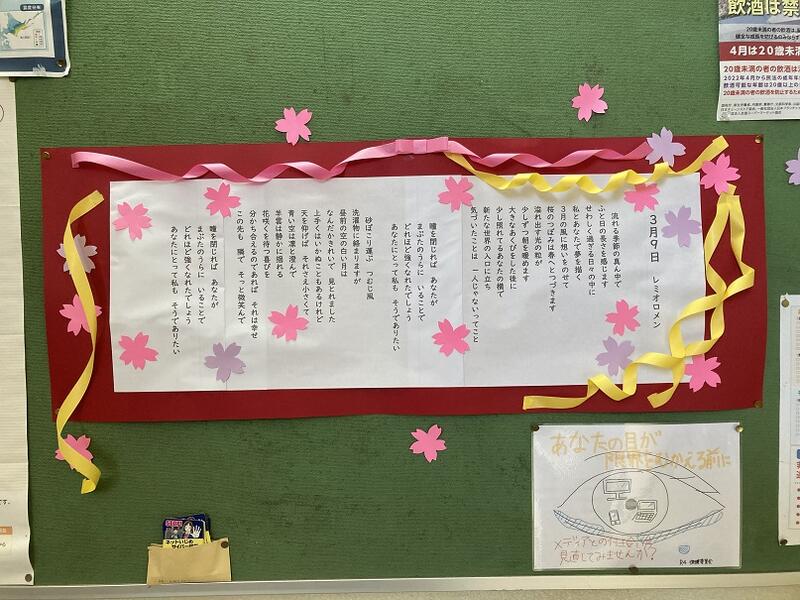 3月9日　レミオロメン
流れる季節の真ん中で
ふと日の長さを感じます
せわしく過ぎる日々の中に
私とあなたで夢を描く
3月の風に想いをのせて
桜のつぼみは春へとつづきます
溢れ出す光の粒が
少しずつ朝を暖めます
大きなあくびをした後に
少し照れてるあなたの横で
新たな世界の入口に立ち
気づいたことは　一人じゃないってこと
瞳を閉じれば　あなたが
まぶたのうらに　いることで
どれほど強くなれたでしょう
あなたにとって私も　そうでありたい
砂ぼこり運ぶ　つむじ風
洗濯物に絡まりますが
昼前の空の白い月は
なんだかきれいで　見とれました
上手くはいかぬこともあるけれど
天を仰げば　それさえ小さくて
青い空は凛と澄んで
羊雲は静かに揺れる
花咲くを待つ喜びを
分かち合えるのであれば　それは幸せ
この先も　隣で　そっと微笑んで
瞳を閉じれば　あなたが
まぶたのうらに　いることで
どれほど強くなれたでしょう
あなたにとって私も　そうでありたい
飲酒は禁
4月は20歳未満
20歳未満の者の飲酒は
あなたの目が
限界をむかえる前に
メディアとの付き合い方
見直してみませんか?
ネットいじめ